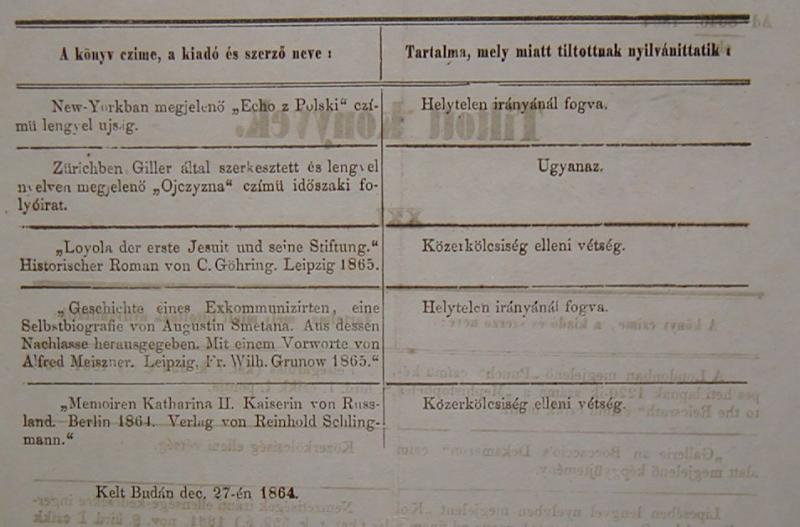 A könyv czime, a kiadó és szerző neve :
Tartalma, mely miatt tiltottnak nyilvánittatik :
New-Yorkban megjelenő „Echo z Polski“ czí-
mü lengyel ujság.
Helytelen irányánál fogva.
Zürichben Giller által szerkesztett és lengyel
nyelven megjelenő „Ojczyzna“ czímü időszaki fo-
lyóirat.
Ugyanaz.
„Loyola der erste Jesuit und seine Stiftung.“
Historischer Roman von C. Göhring. Leipzig 1865.
Közerkölcsiség elleni vétség.
„Geschichte eines Exkommunizirten, eine
Selbstbiografie von Augustin Smetana. Aus dessen
Nachlasse herausgegeben. Mit einem Vorworte von
Alfred Meiszner. Leipzig, Fr. Wilh. Grunow 1865.“
Helytelen irányánál fogva.
„Memoiren Katharina II. Kaiserin von Russ-
land. Berlin 1864. Verlag von Reinhold Schling-
mann.“
Közerkölcsiség elleni vétség.
Kelt Budán dec. 27-én 1864.